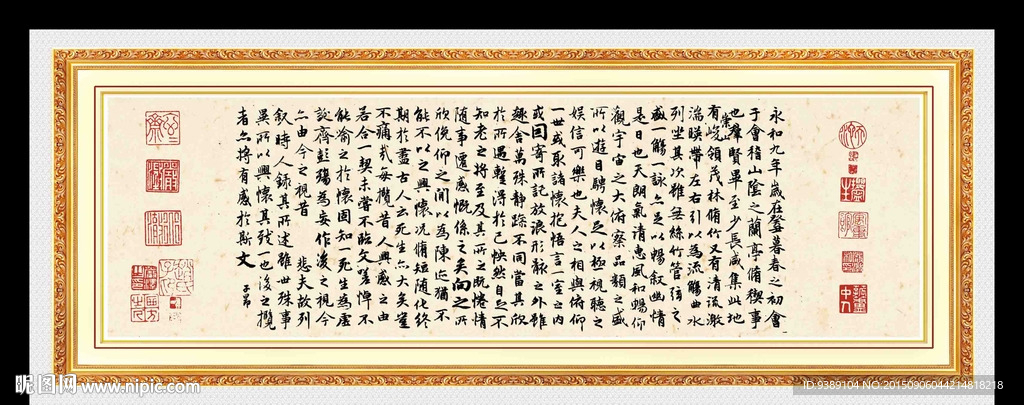 永和九年歲在癸暮春之初會
于會稽山陰之蘭亭脩禊事
也羣賢畢至少長咸集此地
有崇山峻領茂林脩竹又有清流激
湍暎帶左右引以為流觴曲水
列坐其次雖無絲竹管弦之
盛一觴一詠亦足以暢敘幽情
是日也天朗氣清惠風和暢仰
觀宇宙之大俯察品類之盛
所以遊目騁懷足以極視聽之
娛信可樂也夫人之相與俯仰
一世或取諸懷抱悟言一室之內
或因寄所託放浪形骸之外雖
趣舍萬殊靜躁不同當其欣
於所遇暫得於己怏然自足不
知老之將至及其所之既惓情
隨事遷感慨係之矣向之所
欣俛仰之間以為陳迹猶不
能不以之興懷況脩短隨化終
期於盡古人云死生亦大矣豈
不痛哉每攬昔人興感之由
若合一契未嘗不臨文嗟悼不
能喻之於懷固知一死生為虛
誕齊彭殤為妄作後之視今
亦由今之視昔 悲夫故列
敘時人錄其所述雖世殊事
異所以興懷其致一也後之攬
者亦將有感於斯文
子昂
昵图网 www.nipic.com
ID:9389104 NO:20150906044214818218